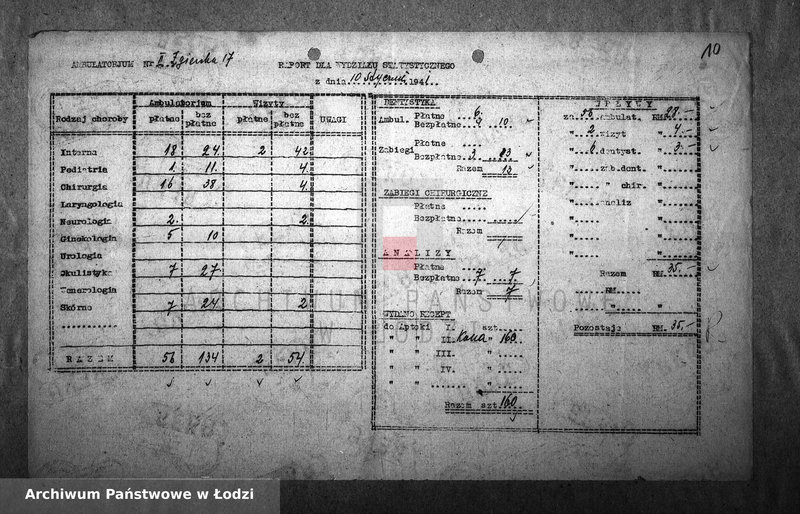 10
AMBULATORJUM Nr II Zgierska 17
RAPORT DLA WYDZIAŁU STATYSTYCZNEGO
z dnia 10 1941
Rodzaj choroby
Ambulatorjum
płatne bez płatne
Wizyty
płatne bez płatne
UWAGI
Interna 18 24 2 42
Pediatria 1. 11. 4.
Chirurgia 16 38 4.
Laryngologia
Neurologia 2. 2.
Ginekologia 5 10
Urologia
Okulistyka 7 27
Wenerologia
Skórne 7 24 2
RAZEM 56 134 2 54
DENTYSTYKA
Ambul. Płatne 6.
Bezpłatne 10
Zabiegi Płatne
Bezpłatne 3.
Razem 13
ZABIEGI CHIRURGICZNE
Płatne
Bezpłatne
Razem
ANALIZY
Płatne
Bezpłatne 7 7
Razem 7
WYDANO RECEPT
do Apteki I. szt.
" " II. " 160
" " III. "
" " IV. "
" " "
Razem szt. 160
za ambulat. RM. 28.-
" 2 wizyt " 4.-
" 6 dentyst. " 3.-
" zab.dent. "
" " chir. "
" analiz "
" "
" "
Razem RM. 35.-
RM.
"
Pozostaje RM. 35.-
ARCHIWUM PAŃSTWOWE
W ŁODZI
Archiwum Państwowe w Łodzi